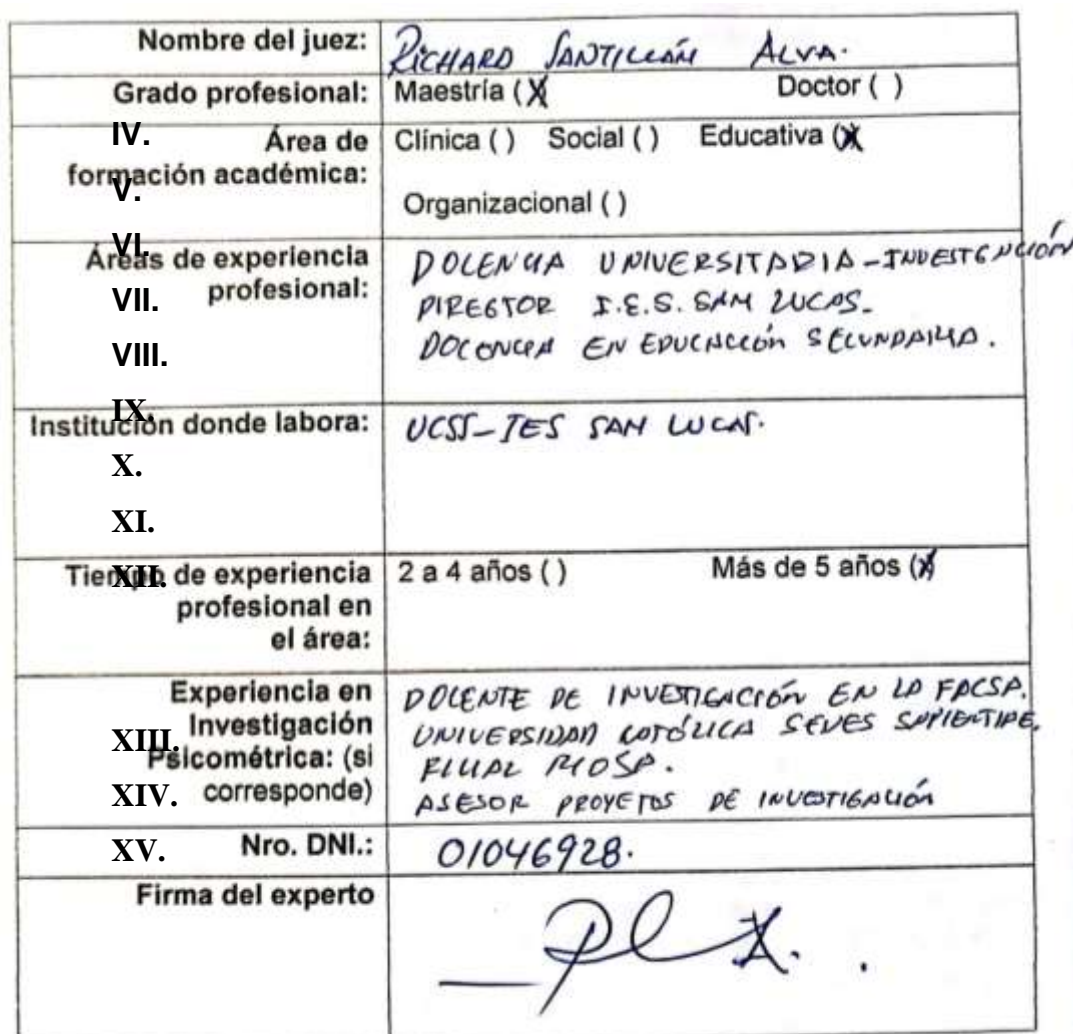 Nombre del juez: RICHARD SANTILLÁN ALVA.
Grado profesional: Maestría (X) Doctor ( )
IV. Área de formación académica: Clínica ( ) Social ( ) Educativa (X)
V. Organizacional ( )
VI. Áreas de experiencia profesional: DOCENCIA UNIVERSITARIA - INVESTIGACIÓN
VII. DIRECTOR I.E.S. SAN LUCAS.
VIII. DOCENCIA EN EDUCACCIÓN SECUNDARIA.
IX. Institución donde labora: UCSS - IES SAN LUCAS.
X.
XI.
XII. Tiempo de experiencia profesional en el área: 2 a 4 años ( ) Más de 5 años (X)
Experiencia en Investigación Psicométrica: (si corresponde) DOCENTE DE INVESTIGACIÓN EN LA FACSA.
XIII. UNIVERSIDAD CATÓLICA SEDES SAPIENTIAE.
FILIAL RIOJA.
XIV. ASESOR PROYETOS DE INVESTIGACIÓN
XV. Nro. DNI.: 01046928.
Firma del experto